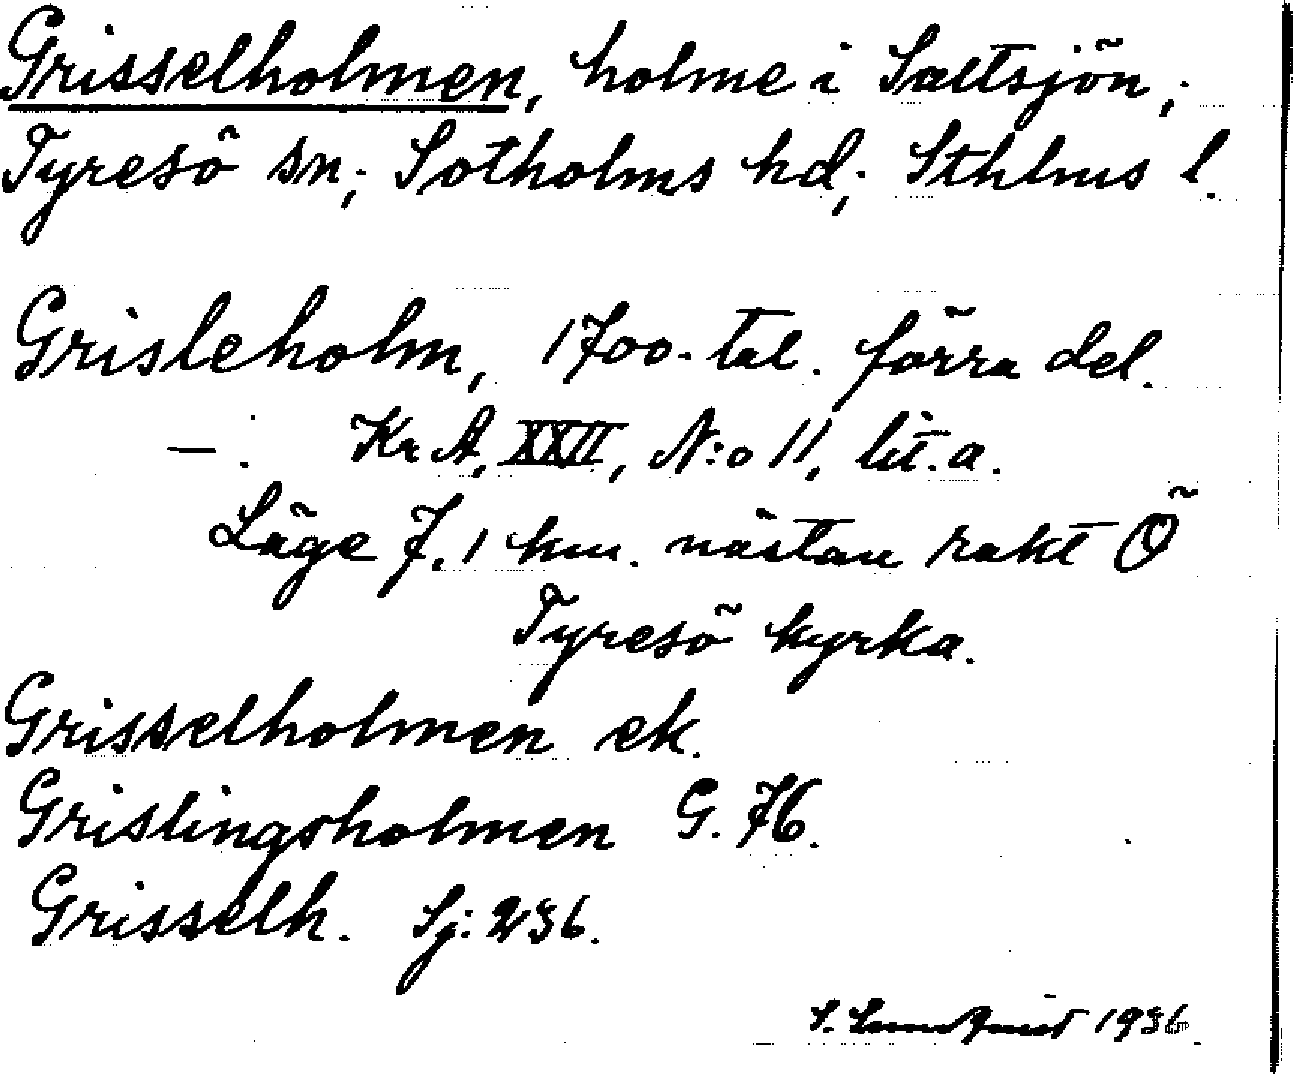 Grisselholmen, holme i Saltsjön,
Tyresö sn, Sotholms hd, Sthlms l.
Grisleholm, 1700-tal. förra del.
— : Kr A, XXII, N:o 11, lit. a.
Läge f. 1 km. nästan rakt Ö
Tyresö kyrka.
Grisselholmen ek.
Grislingsholmen G. 76.
Grisselh. Sj: 236.
S. 1936.